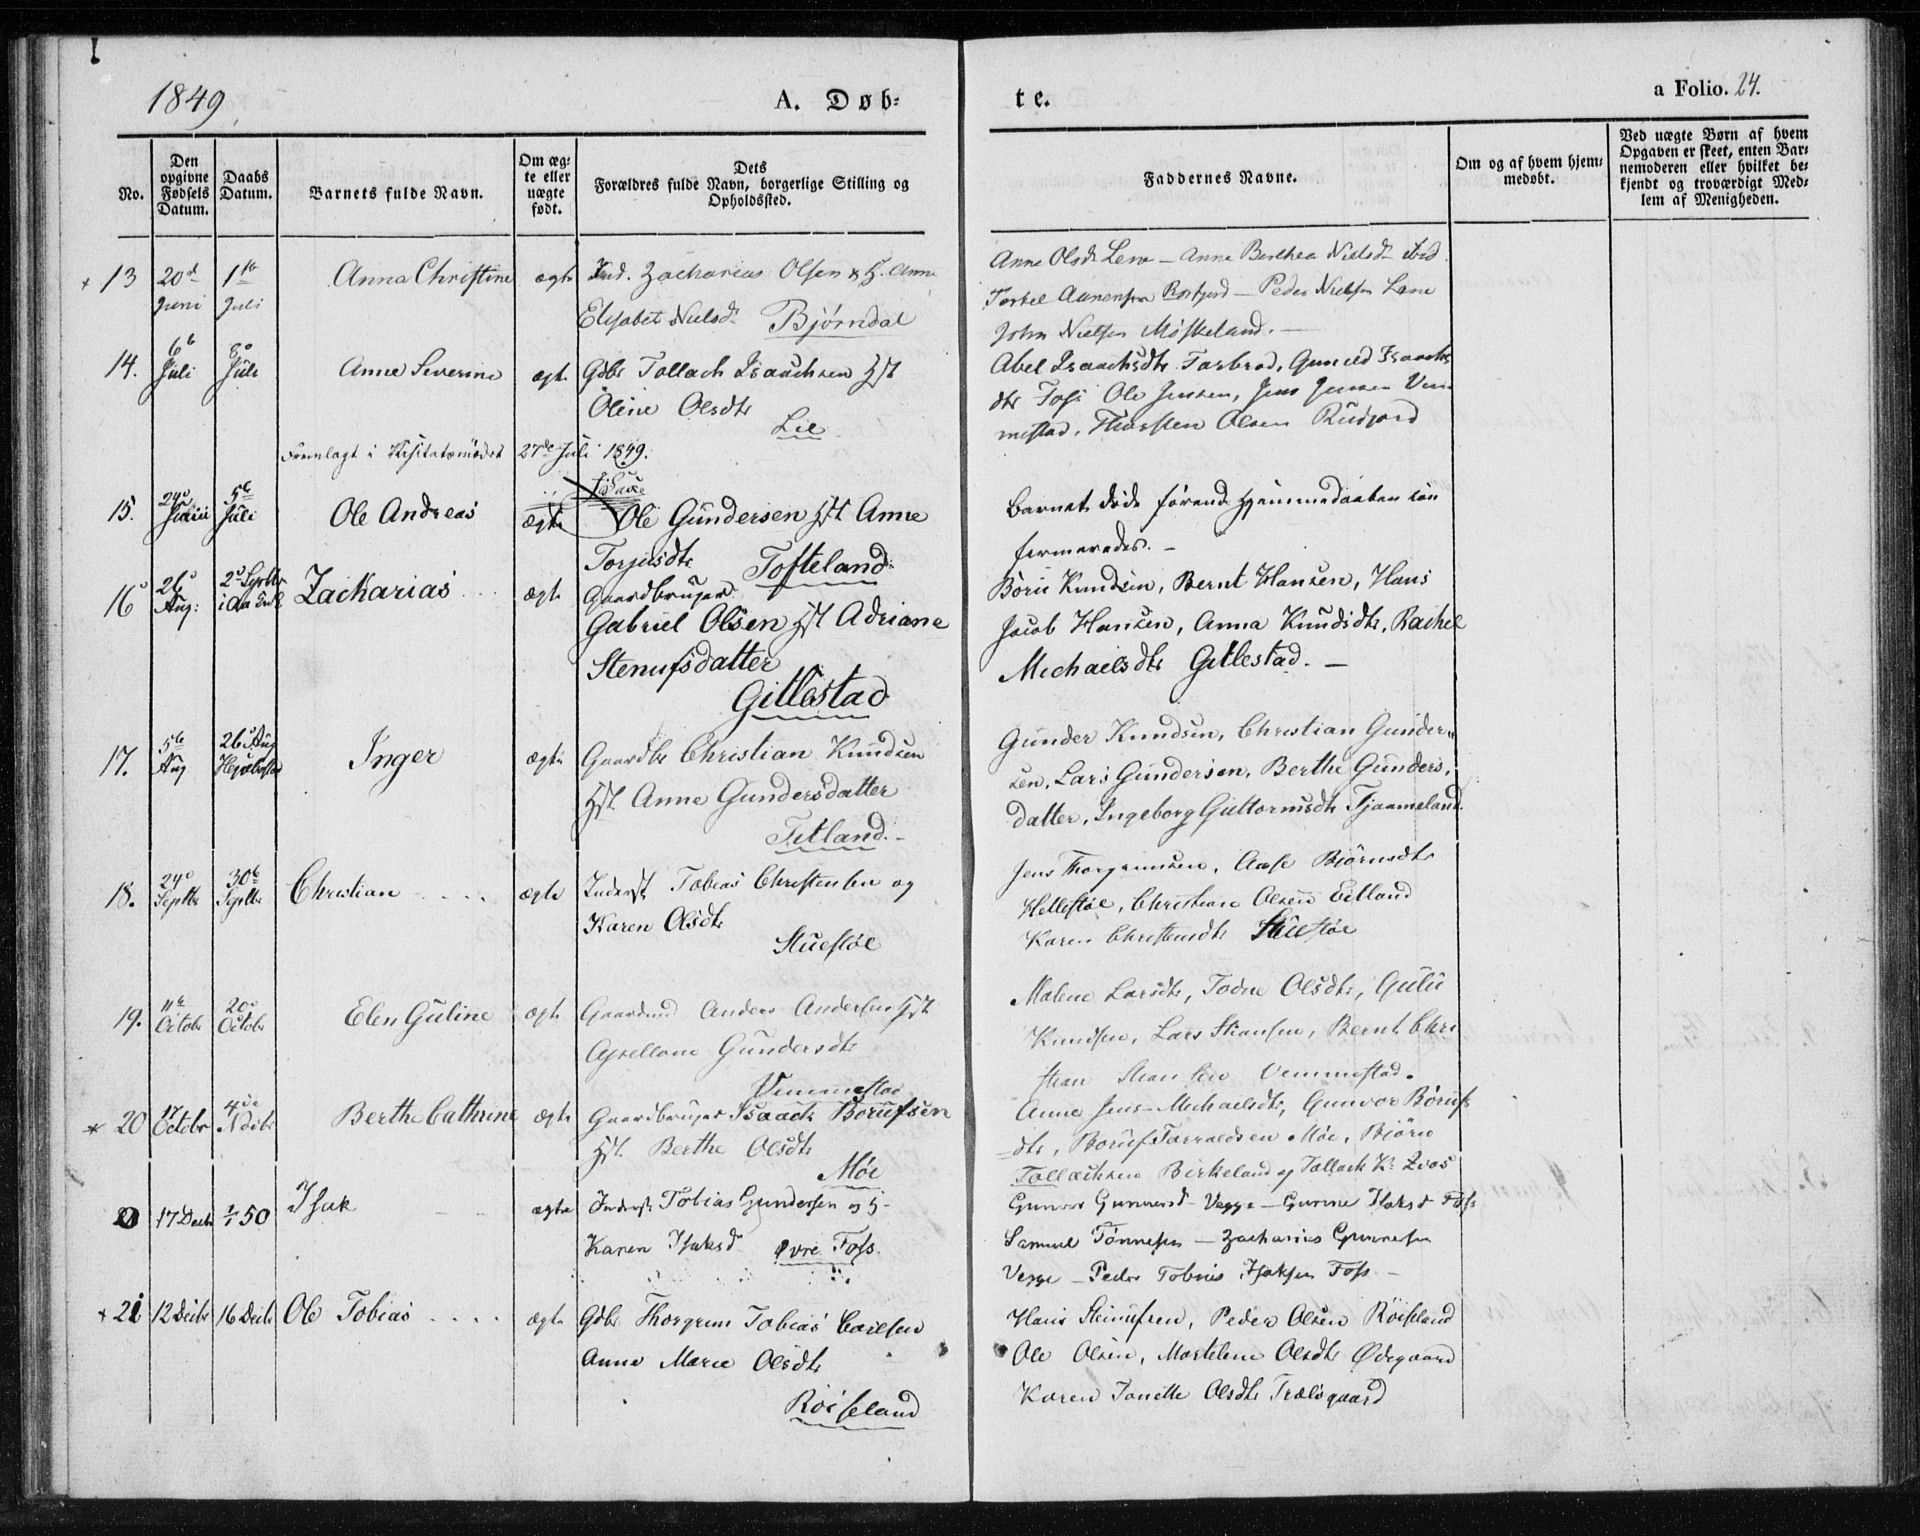 1849.
A. Døb-
te.
a Folio. 24.
No.
Den opgivne Fødsels Datum.
Daabs Datum.
Barnets fulde Navn.
Om ægte eller uægte født.
Dets
Forældres fulde Navn, borgerlige Stilling og
Opholdssted.
Faddernes Navne.
Om og af hvem hjem-
medøbt.
Ved uægte Børn af hvem
Opgaven er skeet, enten Bar-
nemoderen eller hvilket be-
kjendt og troværdigt Med-
lem af Menigheden.
13 20d Juni 1ste Juli Anna Christine ægte Ind. Zacharias Olsen & H. Anna
Elisabet Nielsd. Bjørndal
Anne Olsd. Lene - Anne Berthea Nielsd. ibid
Torkel Aanensen Rosfjord - Peder Nielsen Lene
John Nielsen Møskeland. -
14. 6te Juli 8de Juli Anne Severine ægte Gdbr Tollach Isaachsen Hst
Oline Olsdtr
Lie
Abel Isaachsdtr Farbrod, Guneld Isaachs
dtr Foss Ole Jensen, Jens Jensen Vem
mestad, Thorsten Olsen Rudjord
Fremlagt i Visitatsmødet 27de Juli 1849.
15. 24de Juni 5te Juli Ole Andreas ægte Ole Gundersen Hst Anne
Torjusdtr Tofteland
Barnet døde førend Hjemmedaaben con
fermeredes. -
16 26de Aug: 2de Septbr Zackarias ægte Gaardbruger
Gabriel Olsen Hst Adriane
Stenufsdatter
Gitlestad
Børre Knudsen, Bernt Hansen, Hans
Jacob Hansen, Anna Knudsdtr, Rachel
Michaelsdtr Gitlestad. -
17. 5te Aug 26de Aug Inger ægte Gaardbr Christian Knudsen
Hst. Anne Gundersdatter
Titland. -
Gunder Knudsen, Christian Gunder-
sen, Lars Gundersen, Berthe Gunders,
datter, Ingeborg Guttormsdtr Tjaameland.
18. 24de Septbr 30te Septbr Christian ægte Inderst Tobias Christensen og
Karen Olsdtr
Stuestøe
Jens Thorgrimsen, Aase Bjørnsdtr
Hellestøe, Christian Olsen Eitland
Karen Christensdtr Stuestøe
19. 11te Octobr 20de Octobr Elen Guline ægte Gaardmd Anders Andersen Hst
Axeliane Gundersdtr
Vemmestad
Malene Larsdtr, Todne Olsdtr, Gulu
Knudsen, Lars Stiansen, Bernt Chri
stian Stiansen Vemmestad.
20 17 Octobr 4de Ndbr Berthe Cathrine ægte Gaardbruger Isaack Børufsen
Hst. Berthe Olsdtr
Møe
Anne Jens-Michaelsdtr, Gunvor Børufs
dtr, Børuf Tarraldsen Møe, Bjørn
Tollachsen Birkeland og Tollach K. Qvas
17 Decbr 1/1 50 Isak ægte Inderst. Tobias Gundersen og H-
Karen Isaksd Øvre Foss.
Gunvor Gunnersd Vegge - Gurine Isaksd Foss
Samuel Tønnesen - Zacharias Gunnersen
Vegge - Peder Tobias Isaksen Foss -
21 12 Decbr 16 Decbr Ole Tobias ægte Gdbr Thorgrim Tobias Carlsen
Anne Marie Olsdtr
Røiseland
Hans Steinufsen, Peder Olsen Røiseland
Ole Olsen, Martelene Olsdtr Ødegaard
Karen Tonette Olsdtr Trælsgaard